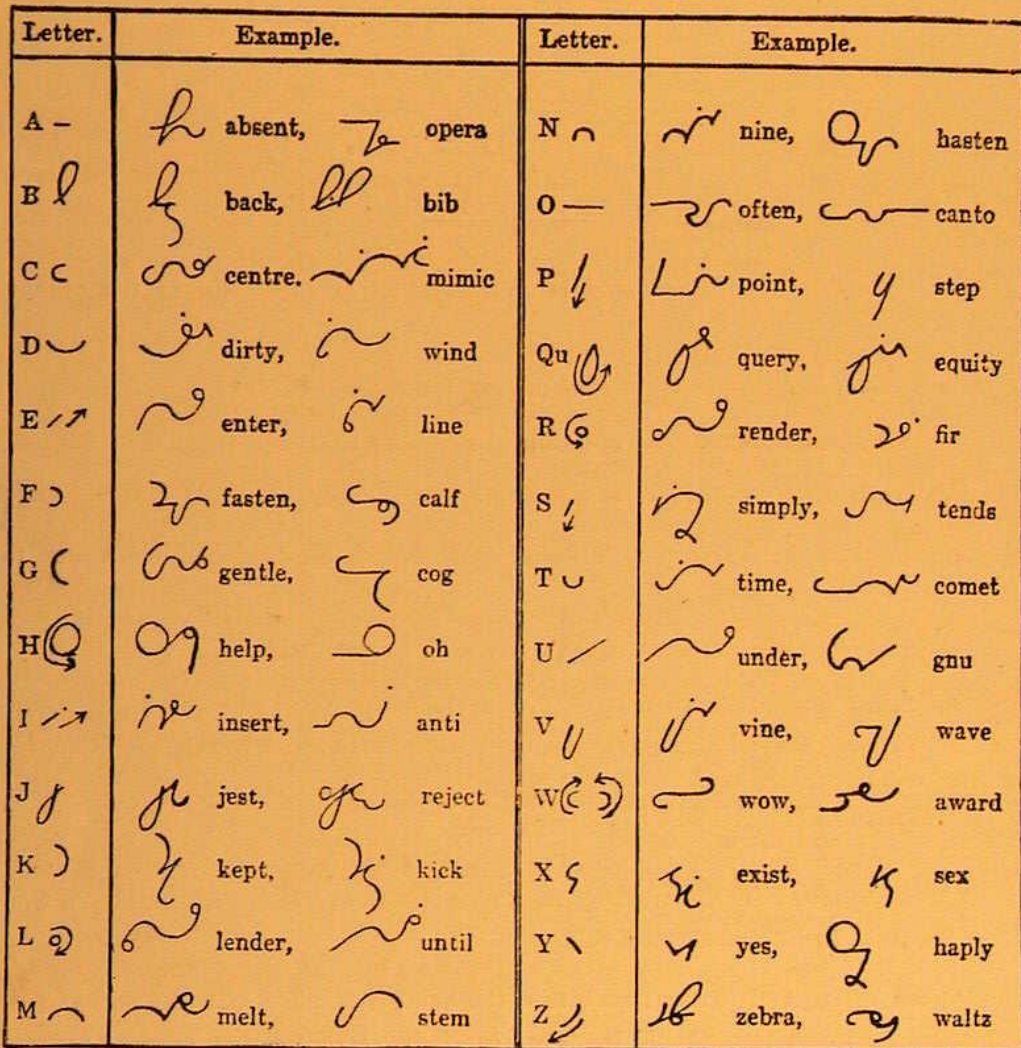 Letter. Example. Letter. Example.
A absent, opera N nine, hasten
B back, bib O often, canto
C centre. mimic P point, step
D dirty, wind Qu query, equity
E enter, line R render, fir
F fasten, calf S simply, tends
G gentle, cog T time, comet
H help, oh U under, gnu
I insert, anti V vine, wave
J jest, reject W wow, award
K kept, kick X exist, sex
L lender, until Y yes, haply
M melt, stem Z zebra, waltz